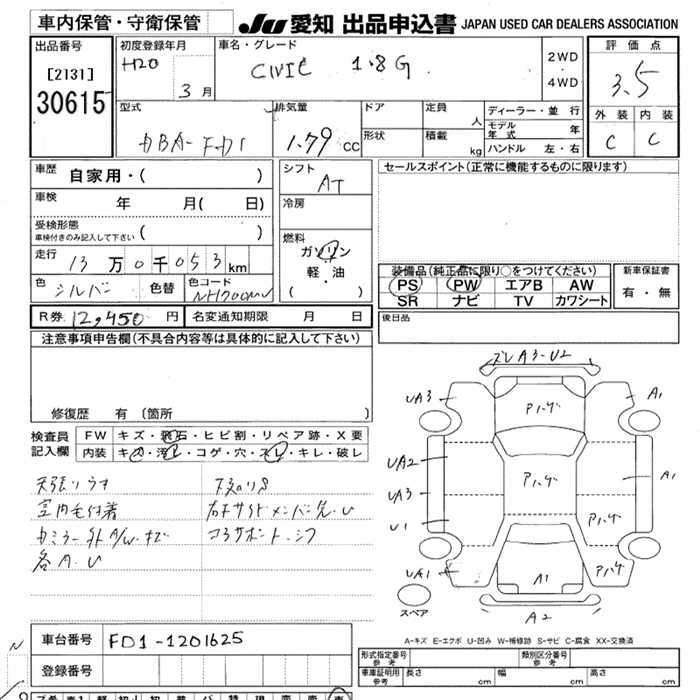 車内保管・守衛保管
JU 愛知 出品申込書 JAPAN USED CAR DEALERS ASSOCIATION
出品番号
[2131]
30615
初度登録年月
H20 3月
車名・グレード
CIVIC 1.8G
2WD
4WD
評価点
3.5
外装 内装
C C
型式
DBA-FD1
排気量
1.79 cc
ドア
形状
定員 人
積載 kg
ディーラー・並行
モデル年式 年
ハンドル 左・右
車歴 自家用・( )
車検 年 月( 日)
受検形態
車検付きのみ記入して下さい ( )
走行 13万0千053km
色 シルバー 色替 色コード
R券 12,450 円 名変通知期限 月 日
シフト
AT
冷房
燃料
ガソリン
軽・油
( )
セールスポイント(正常に機能するものに限ります)
装備品(純正品に限り○をつけてください)
PS PW エアB AW
SR ナビ TV カワシート
新車保証書
有・無
後日品
注意事項申告欄(不具合内容等は具体的に記入して下さい)
修復歴 有(箇所 )
検査員記入欄
FW キズ・飛石・ヒビ割・リペア跡・X要
内装 キズ・汚レ・コゲ・穴・スレ・キレ・破レ
室内毛付着
各A.U
コアサポート
ズレA3-U2
UA3
A1
Aハゲ
UA2
UA3
U1
UA1
Aハゲ
A1
Aハゲ
Aハゲ
A1
A2
スペア
A-キズ E-エクボ U-凹み W-補修跡 S-サビ C-腐食 XX-交換済
車台番号 FD1-1201625
登録番号
形式指定番号 参考
類別区分番号 参考
車庫証明用 参考 長さ cm 幅 cm 高さ cm
N